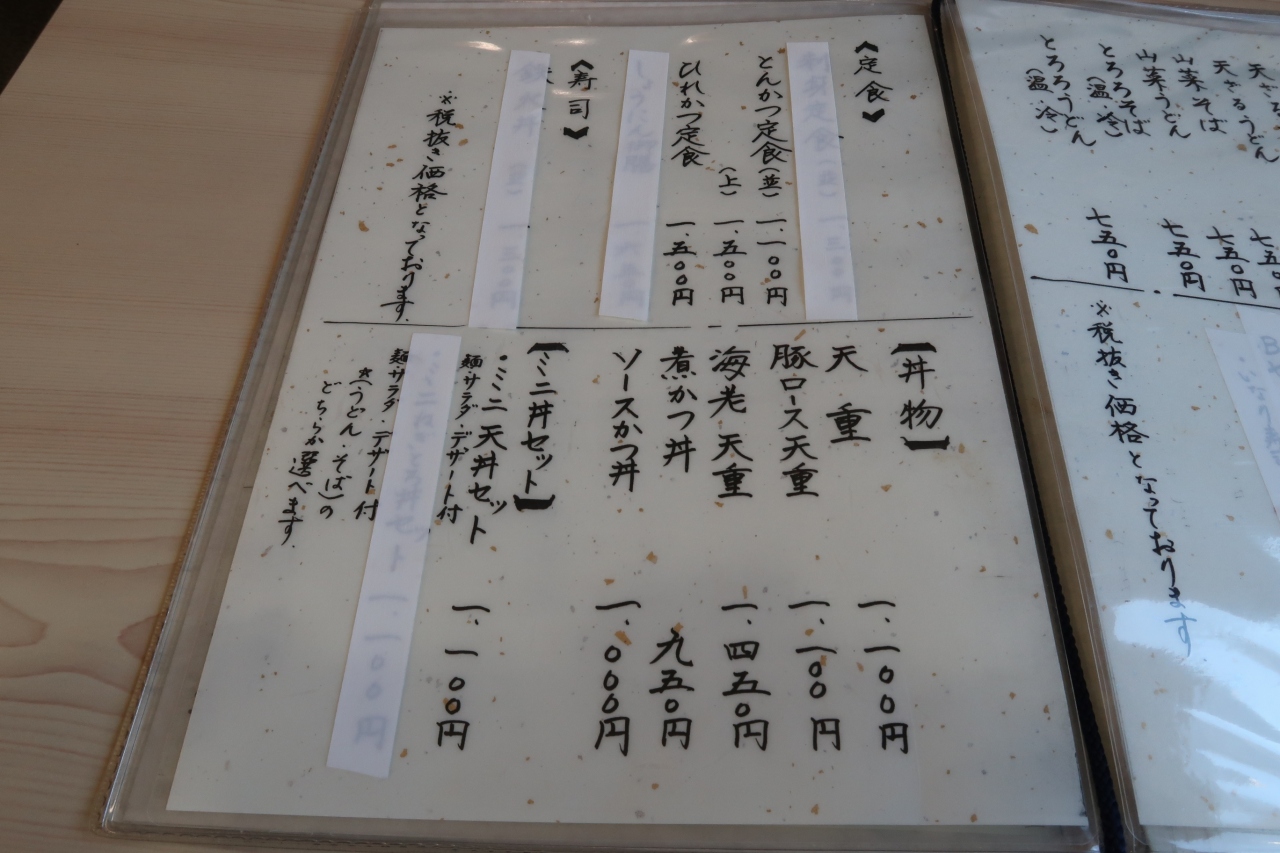 天ざるうどん 七五〇円
山菜そば 七五〇円
山菜うどん 七五〇円
とろろそば
(温・冷)
とろろうどん 七五〇円
(温・冷)
※税抜き価格となっております
《定食》
とんかつ定食(並) 一、一〇〇円
(上) 一、五〇〇円
ひれかつ定食 一、五〇〇円
《寿司》
※税抜き価格となっております。
【丼物】
天重 一、一〇〇円
豚ロース天重 一、一〇〇円
海老天重 一、四五〇円
煮かつ丼 九五〇円
ソースかつ丼 一、〇〇〇円
【ミニ丼セット】
・ミニ天丼セット 一、一〇〇円
麺・サラダ・デザート付
麺・サラダ・デザート付
*(うどん・そば)の
どちらか選べます。